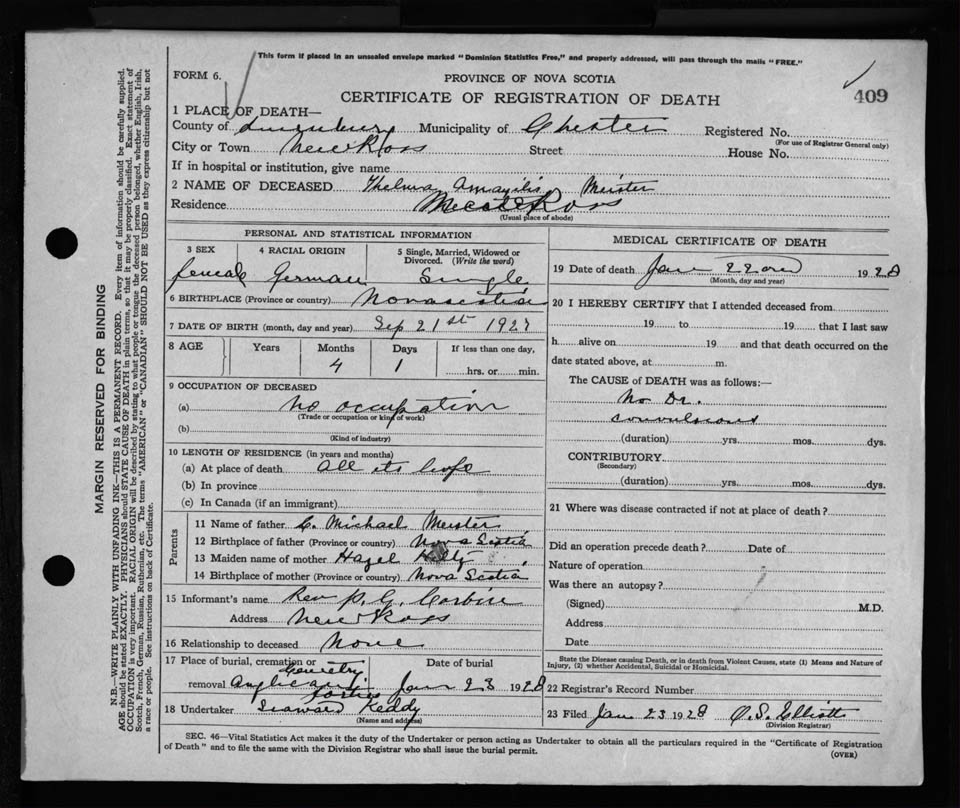 This form if placed in an unsealed envelope marked "Dominion Statistics Free," and properly addressed, will pass through the mails "FREE."
FORM 6.
PROVINCE OF NOVA SCOTIA
CERTIFICATE OF REGISTRATION OF DEATH
409
1 PLACE OF DEATH—
County of Lunenburg Municipality of Chester Registered No.
(For use of Registrar General only)
City or Town New Ross Street House No.
If in hospital or institution, give name
2 NAME OF DECEASED Thelma Meister
Residence Ross
(Usual place of abode)
PERSONAL AND STATISTICAL INFORMATION
3 SEX 4 RACIAL ORIGIN 5 Single, Married, Widowed or Divorced. (Write the word)
female German Single
6 BIRTHPLACE (Province or country) Nova scotia
7 DATE OF BIRTH (month, day and year) Sep 21st 1927
8 AGE Years Months Days If less than one day,
4 1 hrs. or min.
9 OCCUPATION OF DECEASED
(a) No occupation
(Trade or occupation or kind of work)
(b)
(Kind of industry)
10 LENGTH OF RESIDENCE (in years and months)
(a) At place of death all its life
(b) In province
(c) In Canada (if an immigrant)
Parents
11 Name of father C. Michael Meister
12 Birthplace of father (Province or country) Nova Scotia
13 Maiden name of mother Hazel
14 Birthplace of mother (Province or country) Nova Scotia
15 Informant's name Rev
Address New Ross
16 Relationship to deceased None
17 Place of burial, cremation or removal Anglican Date of burial
Jan 23 1928
18 Undertaker Seaward Keddy
(Name and address)
MEDICAL CERTIFICATE OF DEATH
19 Date of death Jan 22nd 1928
(Month, day and year)
20 I HEREBY CERTIFY that I attended deceased from
19 to 19 that I last saw
h alive on 19 and that death occurred on the
date stated above, at m.
The CAUSE of DEATH was as follows:—
No Dr.
convulsions
(duration) yrs. mos. dys.
CONTRIBUTORY
(Secondary)
(duration) yrs. mos. dys.
21 Where was disease contracted if not at place of death?
Did an operation precede death? Date of
Nature of operation
Was there an autopsy?
(Signed) M.D.
Address
Date
State the Disease causing Death, or in death from Violent Causes, state (1) Means and Nature of
Injury, (2) whether Accidental, Suicidal or Homicidal.
22 Registrar's Record Number
23 Filed Jan 23 1928 O. S. Elliott
(Division Registrar)
SEC. 46—Vital Statistics Act makes it the duty of the Undertaker or person acting as Undertaker to obtain all the particulars required in the "Certificate of Registration
of Death" and to file the same with the Division Registrar who shall issue the burial permit.
(OVER)
MARGIN RESERVED FOR BINDING
N.B.—WRITE PLAINLY WITH UNFADING INK—THIS IS A PERMANENT RECORD. Every item of information should be carefully supplied.
AGE should be stated EXACTLY. PHYSICIANS should STATE CAUSE OF DEATH in plain terms, so that it may be properly classified. Exact statement of
OCCUPATION is very important. RACIAL ORIGIN will be described by stating to what people or tongue the deceased person belonged, whether English, Irish,
Scotch, French, German, Russian, Ruthenian, etc. The terms "AMERICAN" or "CANADIAN" SHOULD NOT BE USED as they express citizenship but not
a race or people. See instructions on back of Certificate.